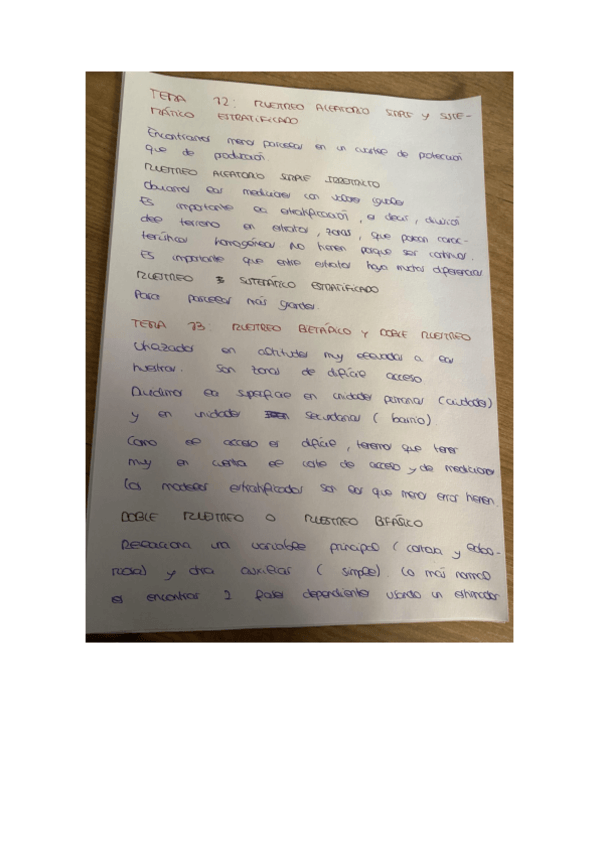 TEMA 12: MUESTREO ALEATORIO SIMPLE Y SISTE-
MÁTICO ESTRATIFICADO
Encontramos menos parcelas en un cuartel de protección
que de producción.
MUESTREO ALEATORIO SIMPLE
las mediciones con valores iguales
Es importante la estratificación, es decir, división
del terreno en estratos, zonas, que posean carac-
terísticas homogéneas. No tienen porque ser continuas.
Es importante que entre estratos haya muchas diferencias
MUESTREO SISTEMÁTICO ESTRATIFICADO
Para parcelas más grandes.
TEMA 13: MUESTREO BIETÁPICO Y DOBLE MUESTREO
Utilizados en altitudes muy elevadas a las
nuestras. Son zonas de difícil acceso.
Dividimos la superficie en unidades primarias (ciudades)
y en unidades secundarias (barrio).
Como el acceso es difícil, tenemos que tener
muy en cuenta el coste de acceso y de mediciones
Los modelos estratificados son los que menos error tienen.
DOBLE MUESTREO O MUESTREO BIFÁSICO
Relaciona una variable principal (costosa y elabo-
rada) y otra auxiliar (simple). Lo más normal
es encontrar 2 fases dependientes usando un estimador